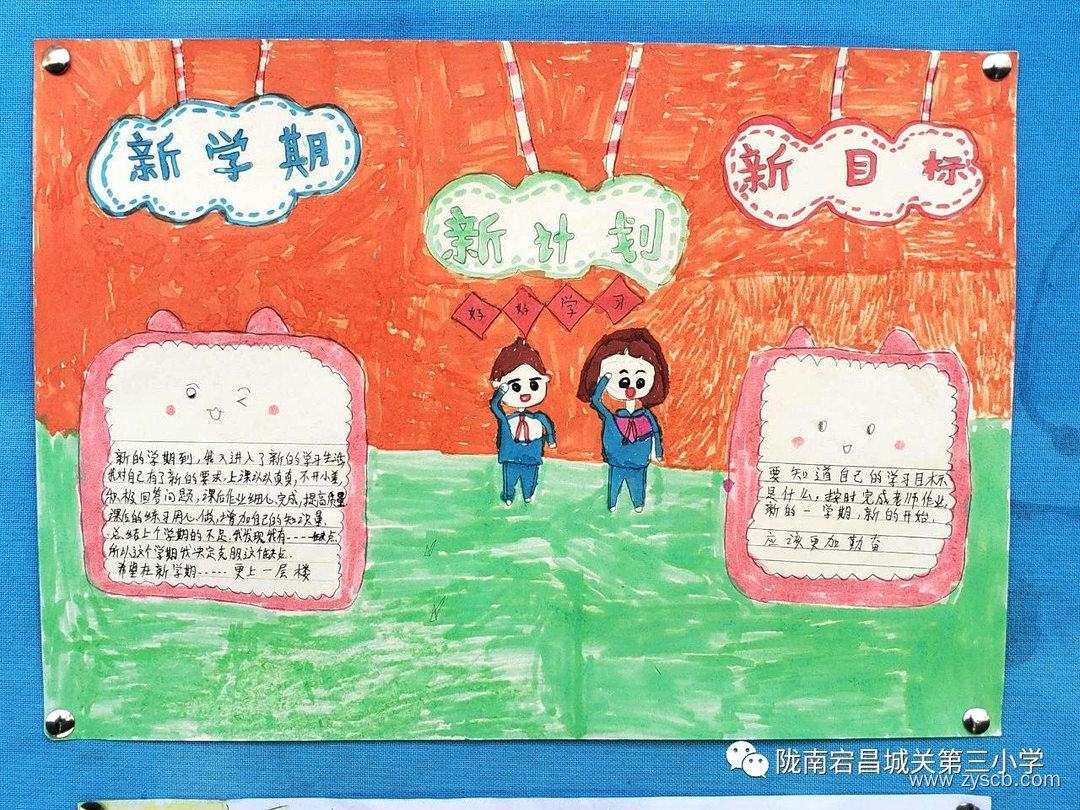 新学期
新目标
新计划
好好学习
新的学期到,我又进入了新的学习生活
我对自己有了新的要求.上课认认真真,不开小差
积极回答问题,课后作业细心完成,提高质量
课后的练习用心做,增加自己的知识量.
总结上个学期的不足.我发现我有……缺点
所以这个学期我决定克服这个缺点.
希望在新学期……更上一层楼
要知道自己的学习目标
是什么,按时完成老师作业,
新的一学期.新的开始.
应该更加勤奋
陇南宕昌城关第三小学
www.zyscb.com